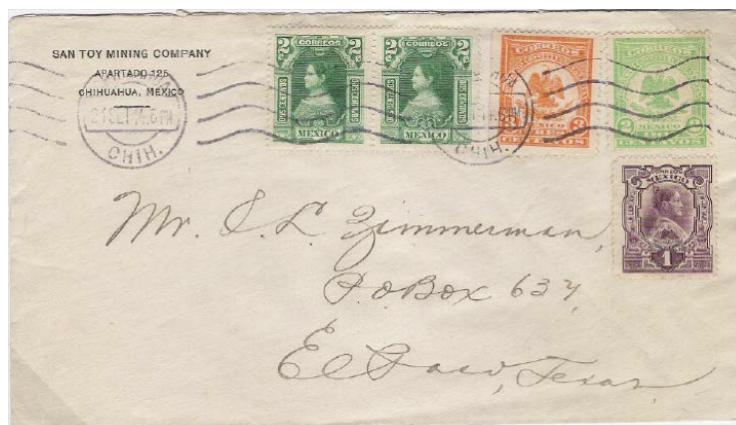 SAN TOY MINING COMPANY
APARTADO 125
CHIHUAHUA, MEXICO
CHIH.
2
CORREOS
2
MEXICO
2
CORREOS
2
MEXICO
CHIH.
CORREOS
MEXICO
CENTAVOS
CORREOS
2
MEXICO
CENTAVOS
MEXICO
1
Mr. S. L. Zimmerman,
P.O. Box 637,
El Paso, Texas